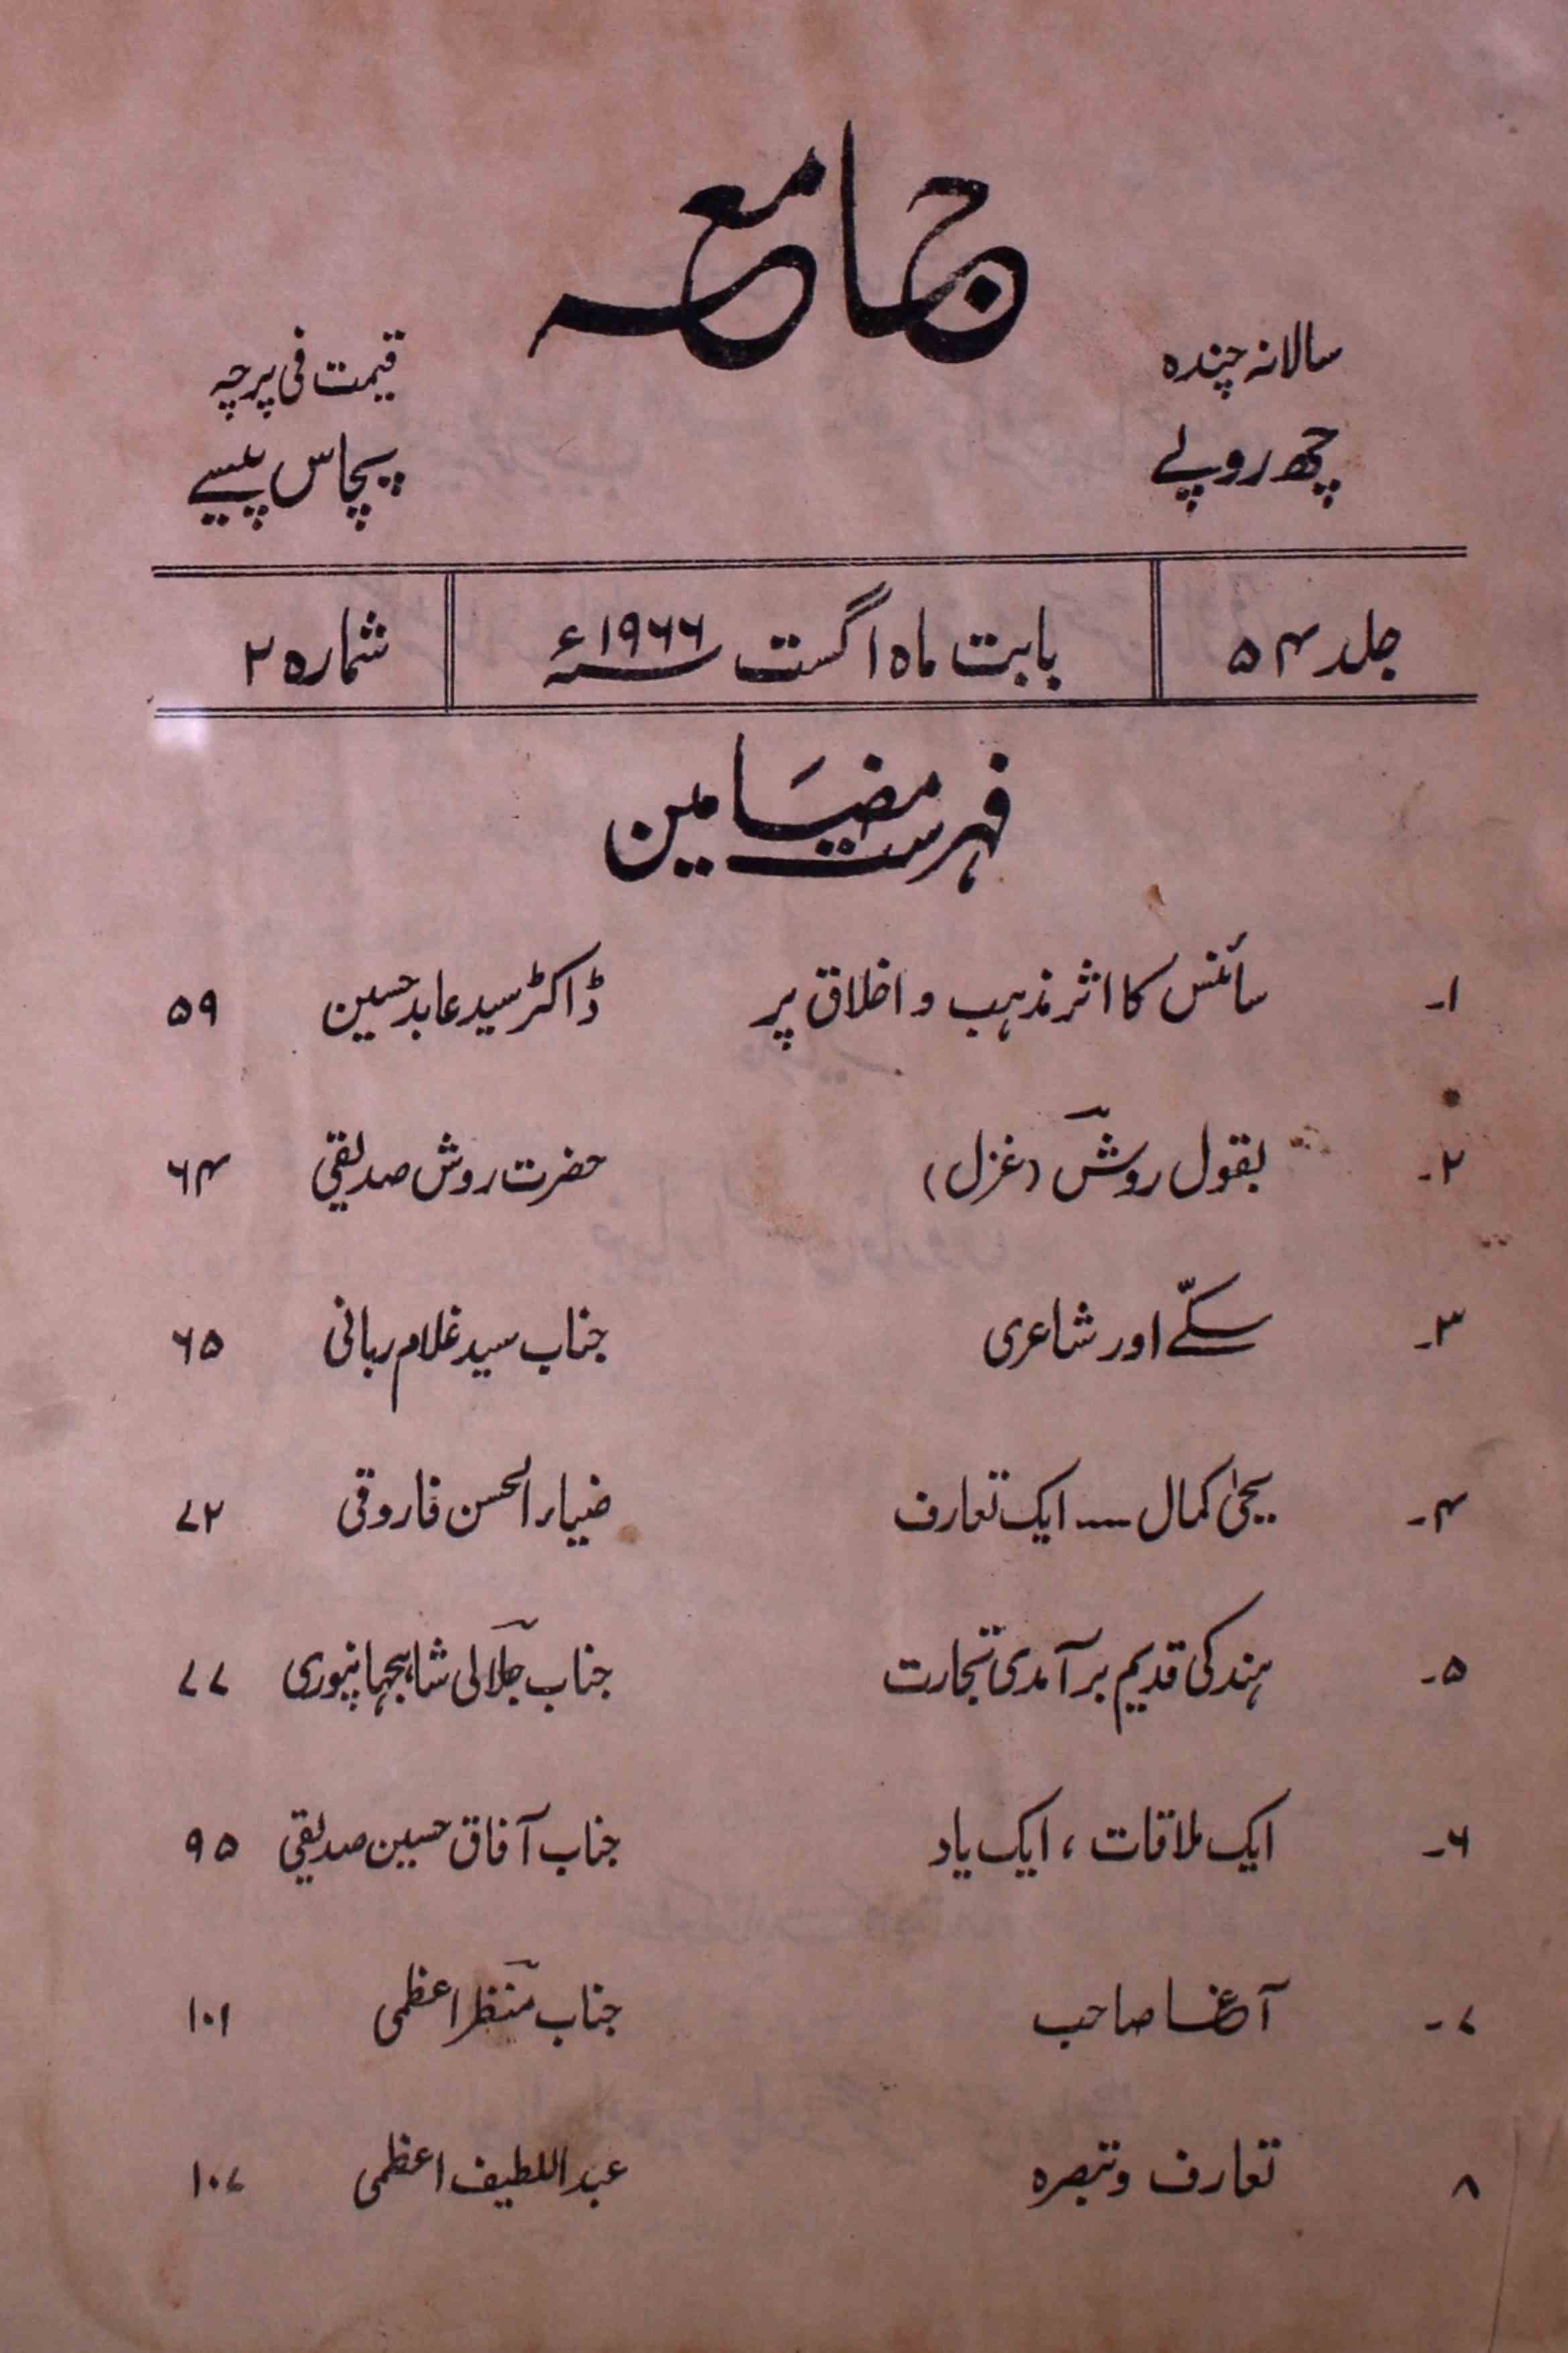 جامعہ
سالانہ چندہ
چھ روپے
قیمت فی پرچہ
پچاس پیسے
جلد ۵۴ بابت ماہ اگست ۱۹۶۶ء شمارہ ۲
فہرست مضامین
۱۔ سائنس کا اثر مذہب و اخلاق پر ڈاکٹر سید عابد حسین ۵۹
۲۔ بقول روشؔ (غزل) حضرت روش صدیقی ۶۴
۳۔ سکّے اور شاعری جناب سید غلام ربانی ۶۵
۴۔ یحییٰ کمال ــــ ایک تعارف ضیاء الحسن فاروقی ۷۲
۵۔ ہند کی قدیم برآمدی تجارت جناب جلالؔی شاہجہانپوری ۷۷
۶۔ ایک ملاقات ، ایک یاد جناب آفاق حسین صدیقی ۹۵
۷۔ آغا صاحب جناب منتظرؔ اعظمی ۱۰۱
۸ تعارف و تبصرہ عبداللطیف اعظمی ۱۰۷